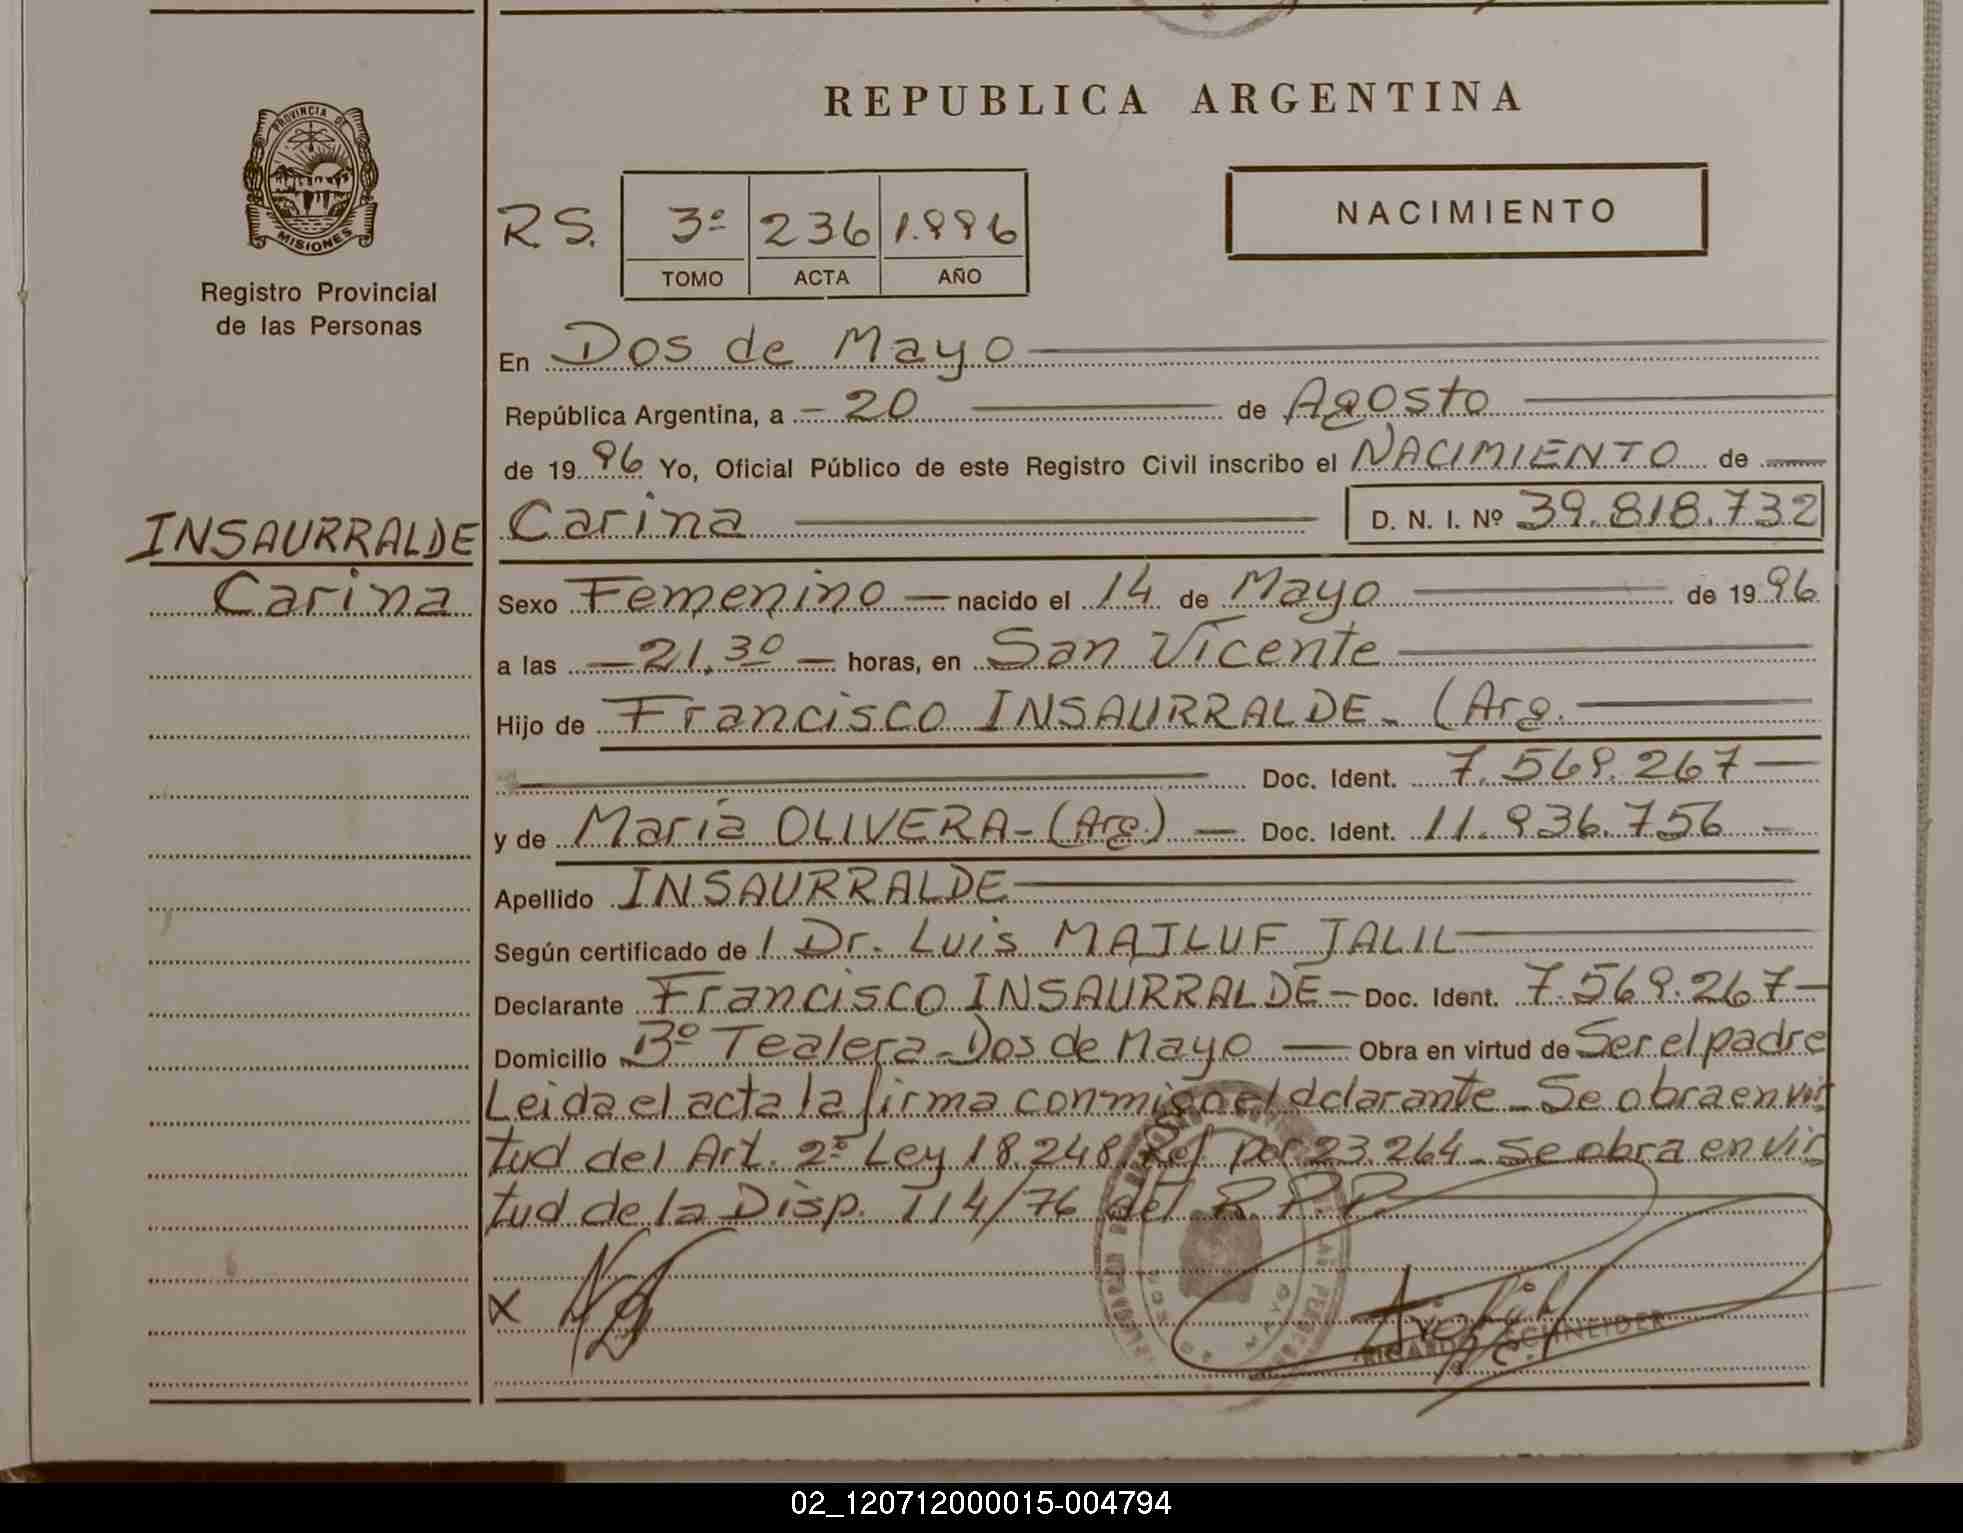 REPUBLICA ARGENTINA
PROVINCIA DE
MISIONES
Registro Provincial
de las Personas
R.S. 3º 236 1.996
TOMO ACTA AÑO
NACIMIENTO
En Dos de Mayo
República Argentina, a 20 de Agosto
de 19 96 Yo, Oficial Público de este Registro Civil inscribo el NACIMIENTO de
INSAURRALDE
Carina
Carina D. N. I. Nº 39.818.732
Sexo Femenino nacido el 14 de Mayo de 19 96
a las 21.30 horas, en San Vicente
Hijo de Francisco INSAURRALDE - (Arg.
Doc. Ident. 7.569.267
y de María OLIVERA - (Arg.) Doc. Ident. 11.936.756
Apellido INSAURRALDE
Según certificado de Dr. Luis MAJLUF JALIL
Declarante Francisco INSAURRALDE - Doc. Ident. 7.569.267
Domicilio Bº Tealera - Dos de Mayo Obra en virtud de Ser el padre
Leida el acta la firma conmigo el dclarante - Se obra en vir
tud del Art. 2º Ley 18.248 Ref. por 23.264 - Se obra en vir
tud de la Disp. 114/76 del R.P.P.
X
RICARDO SCHNEIDER
02_120712000015-004794